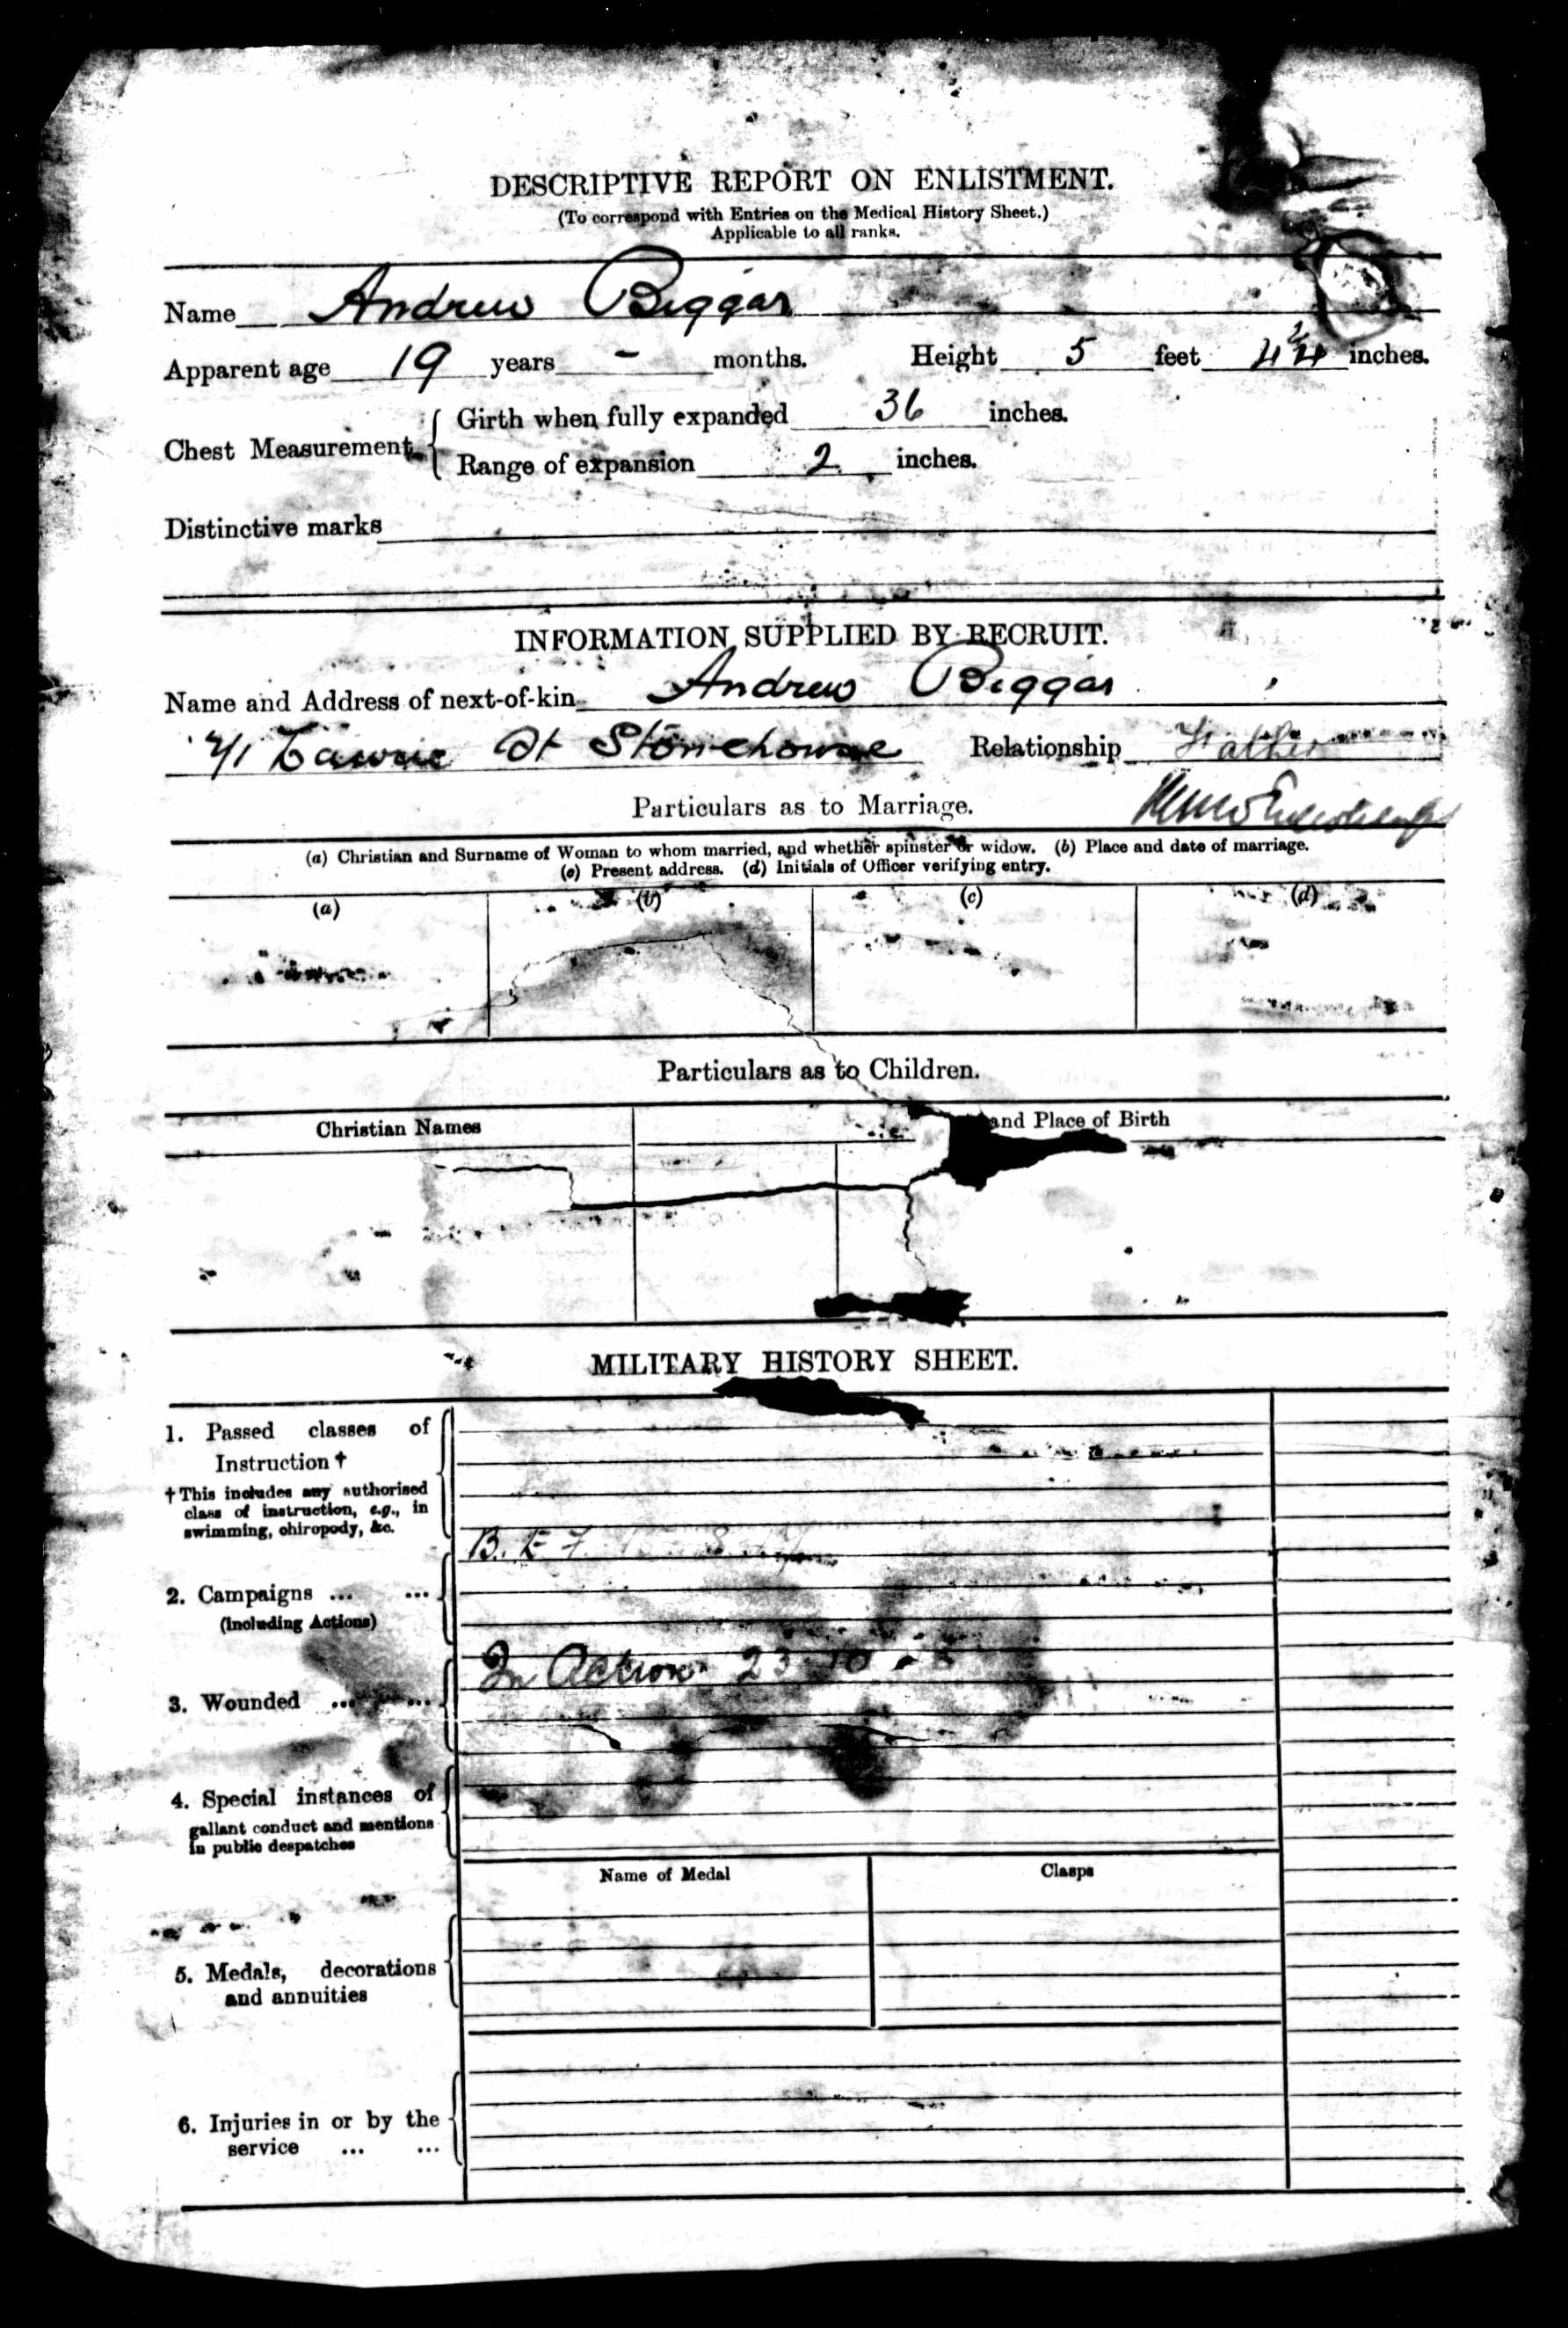 DESCRIPTIVE REPORT ON ENLISTMENT.
(To correspond with Entries on the Medical History Sheet.)
Applicable to all ranks.
Name Andrew Biggar
Apparent age 19 years - months. Height 5 feet 4 inches.
Chest Measurement Girth when fully expanded 36 inches.
Range of expansion 2 inches.
Distinctive marks
INFORMATION SUPPLIED BY RECRUIT.
Name and Address of next-of-kin Andrew Biggar
St Stonehouse Relationship Father
Particulars as to Marriage.
(a) Christian and Surname of Woman to whom married, and whether spinster or widow. (b) Place and date of marriage.
(c) Present address. (d) Initials of Officer verifying entry.
(a) (b) (c) (d)
Particulars as to Children.
Christian Names and Place of Birth
MILITARY HISTORY SHEET.
1. Passed classes of
Instruction †
† This includes any authorised
class of instruction, e.g., in
swimming, chiropody, &c.
B. E F
2. Campaigns ... ...
(including Actions)
In Action 23 10
3. Wounded ... ...
4. Special instances of
gallant conduct and mentions
in public despatches
Name of Medal Clasps
5. Medals, decorations
and annuities
6. Injuries in or by the
service ... ...